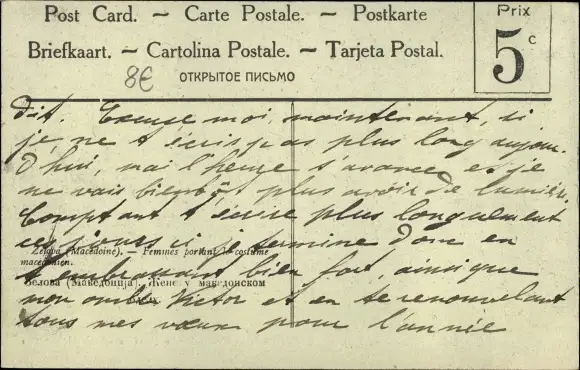 Post Card. — Carte Postale. — Postkarte
Briefkaart. — Cartolina Postale. — Tarjeta Postal.
ОТКРЫТОЕ ПИСЬМО
Prix
5 c
8€
dit. Excuse moi, maintenant, si
je ne t'écris pas plus long aujour-
d'hui, mai l'heure s'avance et je
ne vais bientôt plus avoir de lumière.
Comptant t'écrire plus longuement
ces jours ci je termine donc en
Zelova (Macédoine). — Femmes portant le costume
macédonien.
t'embrassant bien fort, ainsi que
Велова (Македонија). Жене у македонском
mon oncle Victor et en te renouvelant
tous mes vœux pour l'année